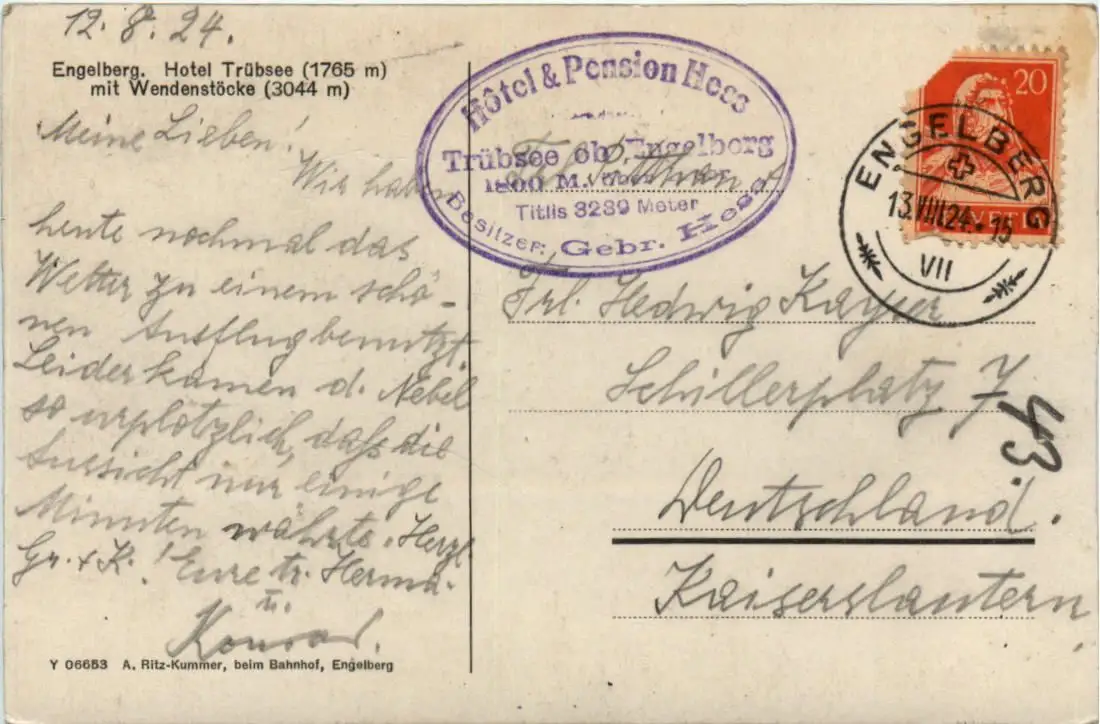 12.8.24.
Engelberg. Hotel Trübsee (1765 m)
mit Wendenstöcke (3044 m)
Meine Lieben!
Wir haben
heute nochmal das
Wetter zu einem schö-
nen Ausflug benutzt.
Leider kamen d. Nebel
so urplötzlich, daß die
Aussicht nur einige
Minuten währte. Herzl.
Gr. + K.! Eure tr. Herma.
u.
Konrad.
Y 06653 A. Ritz-Kummer, beim Bahnhof, Engelberg
Hôtel & Pension Hess
Trübsee ob Engelberg
1800 M. über Meer
Titlis 3239 Meter
Besitzer: Gebr. Hess
20
HELVETIA
ENGELBERG
13.VIII.24.-15
VII
Frl. Hedwig Kayser
Schillerplatz 7
43.
Deutschland.
Kaiserslautern